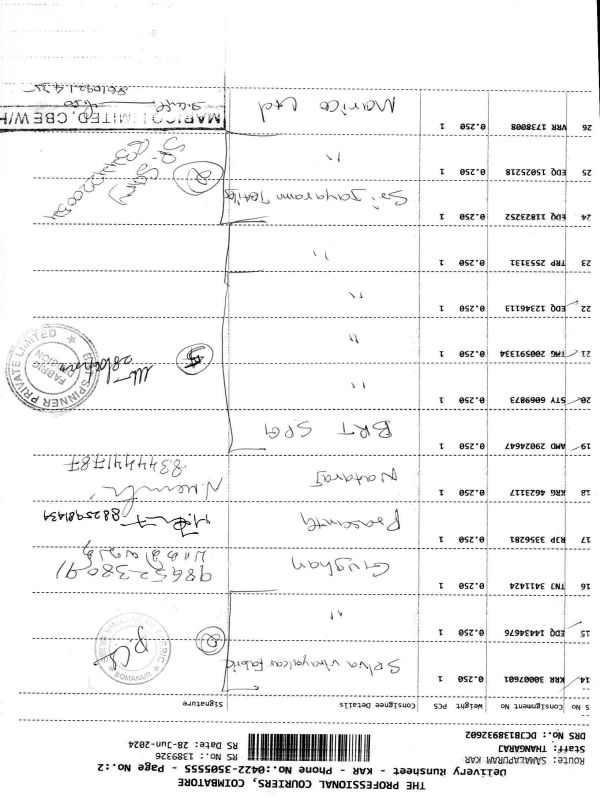 THE PROFESSIONAL COURIERS, COIMBATORE
Delivery Runsheet - KAR - Phone No.:0422-3505555 - Page No.:2
Route: SAMALAPURAM KAR
Staff: THANGARAJ
DRS No.: DCJB13893602
RS No.: 1389326
RS Date: 28-Jun-2024
S No Consignment No Weight PCS Consignee Details Signature
14 KRR 30007601 0.250 1 Selva vinayakar Fabric
15 EDQ 14434676 0.250 1 "
2
SOMANUR
16 TNJ 3411424 0.250 1 Gughan 9865238091
17 RJP 3356281 0.250 1 Prasanth 8825981439
18 KRG 4623117 0.250 1 Nataraj 8344441787
19 AMD 29024647 0.250 1 BRT SPG
20 STY 6069873 0.250 1 "
21 TMG 200591334 0.250 1 "
22 EDQ 12346113 0.250 1 "
23 TRP 2553131 0.250 1 "
5
SPINNER PRIVATE LIMITED
FABRIC DIVISION
24 EDQ 11823252 0.250 1 Sri Jayaram Textiles
25 EDQ 15025218 0.250 1 "
2
26 VRR 1738008 0.250 1 Marico Ltd
MARICO LIMITED, CBE W/H